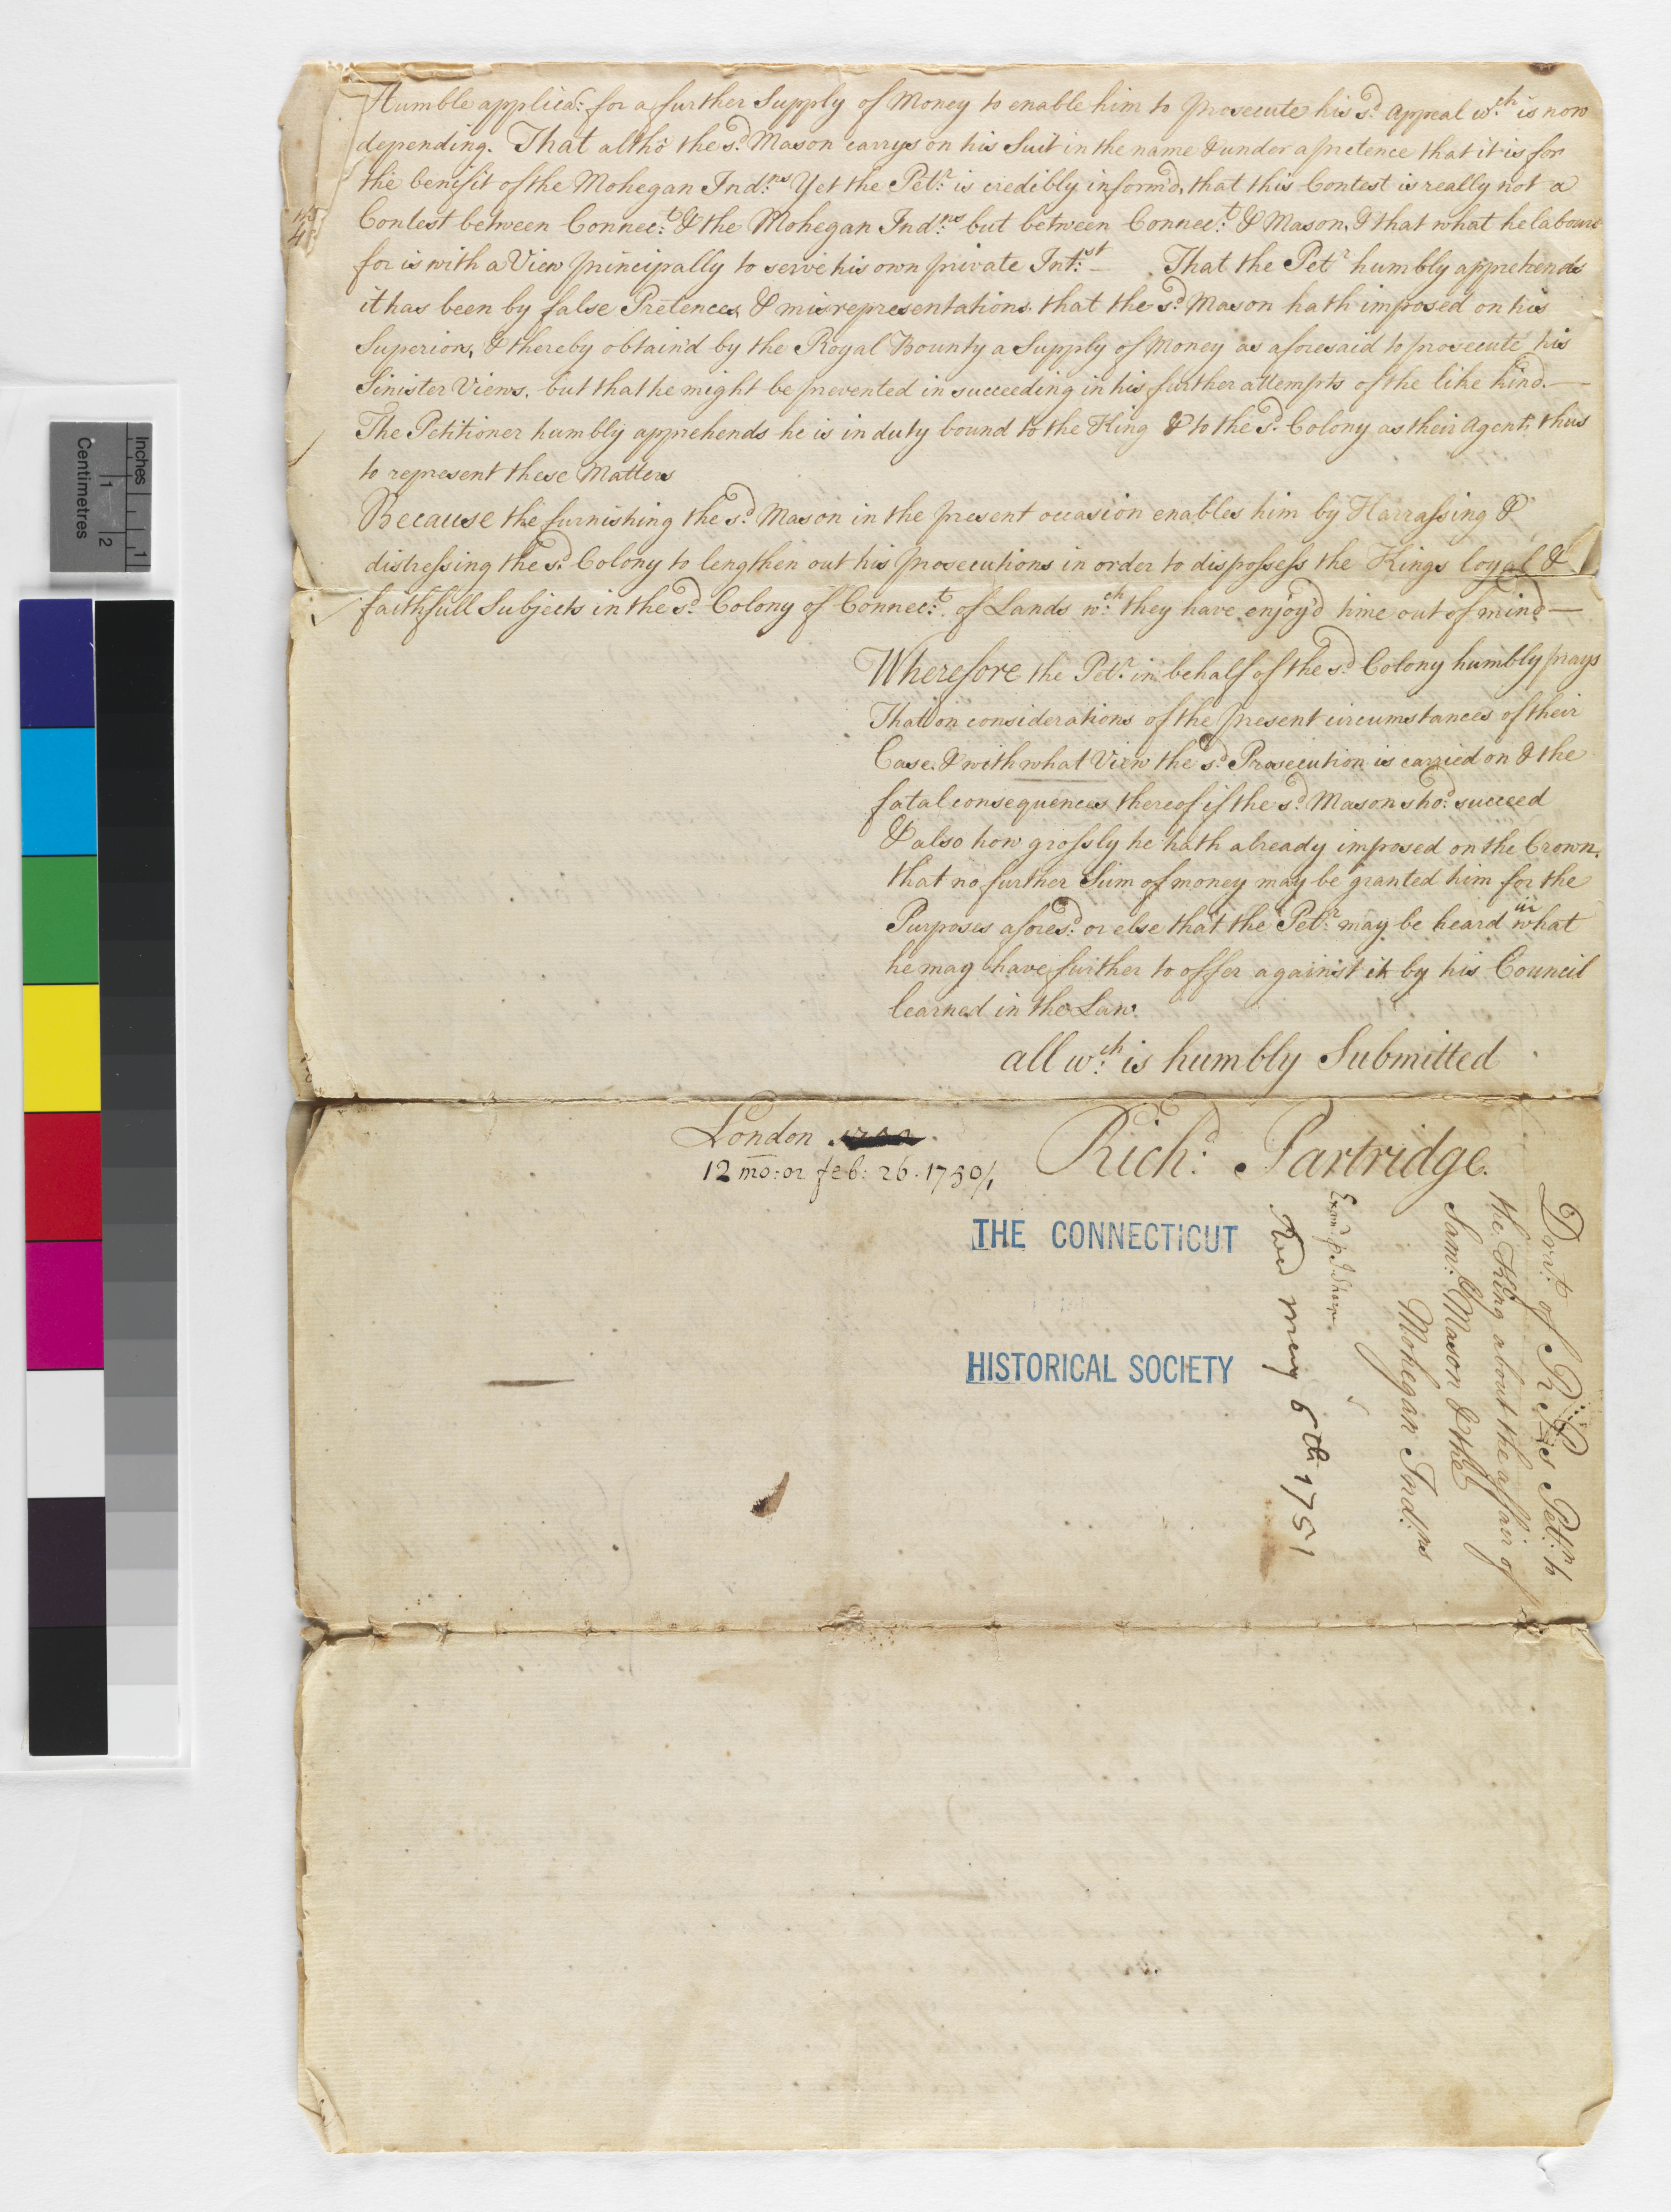 Humble applica: for a further Supply of Money to enable him to prosecute his sd. appeal wch. is now
depending. That altho the sd. Mason carrys on his Suit in the name & under a pretence that it is for
the benifit of the Mohegan Ind:ns Yet the Petr. is credibly inform'd, that this Contest is really not a
Contest between Connec:t & the Mohegan Ind:ns but between Connec:t & Mason, & that what he labours
for is with a View principally to serve his own private Int:st — That the Petr. humbly apprehends
it has been by false Pretences, & misrepresentations, that the sd. Mason hath imposed on his
Superiors, & thereby obtain'd by the Royal Bounty a Supply of Money as aforesaid to prosecute his
Sinister Views, but that he might be prevented in succeeding in his further attempts of the like kind. —
The Petitioner humbly apprehends he is in duty bound to the King & to the sd. Colony as their Agent, thus
to represent these Matters
Because the furnishing the sd. Mason in the present occasion enables him by Harrassing &
distressing the sd. Colony to lengthen out his prosecutions in order to dispossess the Kings loyal &
faithfull Subjects in the sd. Colony of Connec:t of Lands wch. they have enjoy'd time out of mind —
Wherefore the Petr. in behalf of the sd. Colony humbly prays
That on considerations of the present circumstances of their
Case. & with what View the sd. Prosecution is carried on & the
fatal consequences thereof if the sd. Mason shod. succeed
& also how grossly he hath already imposed on the Crown,
that no further Sum of money may be granted him for the
Purposes aforesd: or else that the Petr. may be heard in what
he may have further to offer against it by his Council
learned in the Law.
all wch. is humbly Submitted
London
12 mo: or feb: 26. 1750/1
Richd: Partridge.
THE CONNECTICUT
HISTORICAL SOCIETY
Dra:t of R: P:s Pet:n to
the King about the affair of
Sam:l Mason & the
Mohegan Ind:ns
Recd may 6th 1751